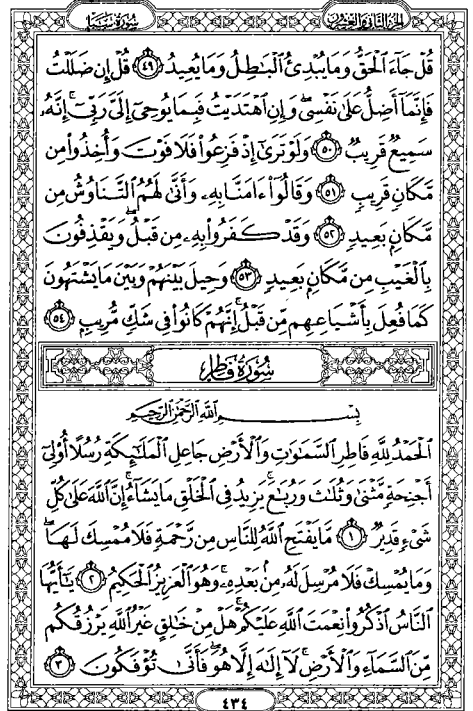 الجزء الثاني والعشرون
سورة سبإ
قُلۡ جَآءَ ٱلۡحَقُّ وَمَا يُبۡدِئُ ٱلۡبَٰطِلُ وَمَا يُعِيدُ ٤٩ قُلۡ إِن ضَلَلۡتُ
فَإِنَّمَآ أَضِلُّ عَلَىٰ نَفۡسِيۖ وَإِنِ ٱهۡتَدَيۡتُ فَبِمَا يُوحِيٓ إِلَيَّ رَبِّيٓۚ إِنَّهُۥ
سَمِيعٞ قَرِيبٞ ٥٠ وَلَوۡ تَرَىٰٓ إِذۡ فَزِعُواْ فَلَا فَوۡتَ وَأُخِذُواْ مِن
مَّكَانٖ قَرِيبٖ ٥١ وَقَالُوٓاْ ءَامَنَّا بِهِۦ وَأَنَّىٰ لَهُمُ ٱلتَّنَاوُشُ مِن
مَّكَانِۭ بَعِيدٖ ٥٢ وَقَدۡ كَفَرُواْ بِهِۦ مِن قَبۡلُۖ وَيَقۡذِفُونَ
بِٱلۡغَيۡبِ مِن مَّكَانِۭ بَعِيدٖ ٥٣ وَحِيلَ بَيۡنَهُمۡ وَبَيۡنَ مَا يَشۡتَهُونَ
كَمَا فُعِلَ بِأَشۡيَاعِهِم مِّن قَبۡلُۚ إِنَّهُمۡ كَانُواْ فِي شَكّٖ مُّرِيبِۭ ٥٤
سورة فاطر
بِسۡمِ ٱللَّهِ ٱلرَّحۡمَٰنِ ٱلرَّحِيمِ
ٱلۡحَمۡدُ لِلَّهِ فَاطِرِ ٱلسَّمَٰوَٰتِ وَٱلۡأَرۡضِ جَاعِلِ ٱلۡمَلَٰٓئِكَةِ رُسُلًا أُوْلِيٓ
أَجۡنِحَةٖ مَّثۡنَىٰ وَثُلَٰثَ وَرُبَٰعَۚ يَزِيدُ فِي ٱلۡخَلۡقِ مَا يَشَآءُۚ إِنَّ ٱللَّهَ عَلَىٰ كُلِّ
شَيۡءٖ قَدِيرٞ ١ مَّا يَفۡتَحِ ٱللَّهُ لِلنَّاسِ مِن رَّحۡمَةٖ فَلَا مُمۡسِكَ لَهَاۖ
وَمَا يُمۡسِكۡ فَلَا مُرۡسِلَ لَهُۥ مِنۢ بَعۡدِهِۦۚ وَهُوَ ٱلۡعَزِيزُ ٱلۡحَكِيمُ ٢ يَٰٓأَيُّهَا
ٱلنَّاسُ ٱذۡكُرُواْ نِعۡمَتَ ٱللَّهِ عَلَيۡكُمۡۚ هَلۡ مِنۡ خَٰلِقٍ غَيۡرُ ٱللَّهِ يَرۡزُقُكُم
مِّنَ ٱلسَّمَآءِ وَٱلۡأَرۡضِۚ لَآ إِلَٰهَ إِلَّا هُوَۖ فَأَنَّىٰ تُؤۡفَكُونَ ٣
٤٣٤